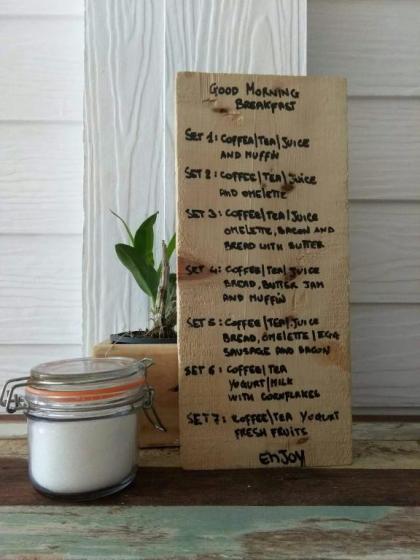 GOOD MORNING
BREAKFAST
SET 1: COFFEE/TEA/JUICE
AND MUFFIN
SET 2: COFFEE/TEA/JUICE
AND OMELETTE
SET 3: COFFEE/TEA/JUICE
OMELETTE, BACON AND
BREAD WITH BUTTER
SET 4: COFFEE/TEA/JUICE
BREAD, BUTTER JAM
AND MUFFIN
SET 5: COFFEE/TEA/JUICE
BREAD, OMELETTE/EGG
SAUSAGE AND BACON
SET 6: COFFEE/TEA
YOGURT/MILK
WITH CORNFLAKES
SET 7: COFFEE/TEA YOGURT
FRESH FRUITS
ENJOY